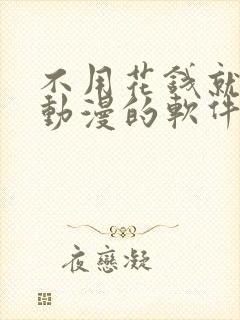 不用花錢就
動漫的軟件
夜戀凝